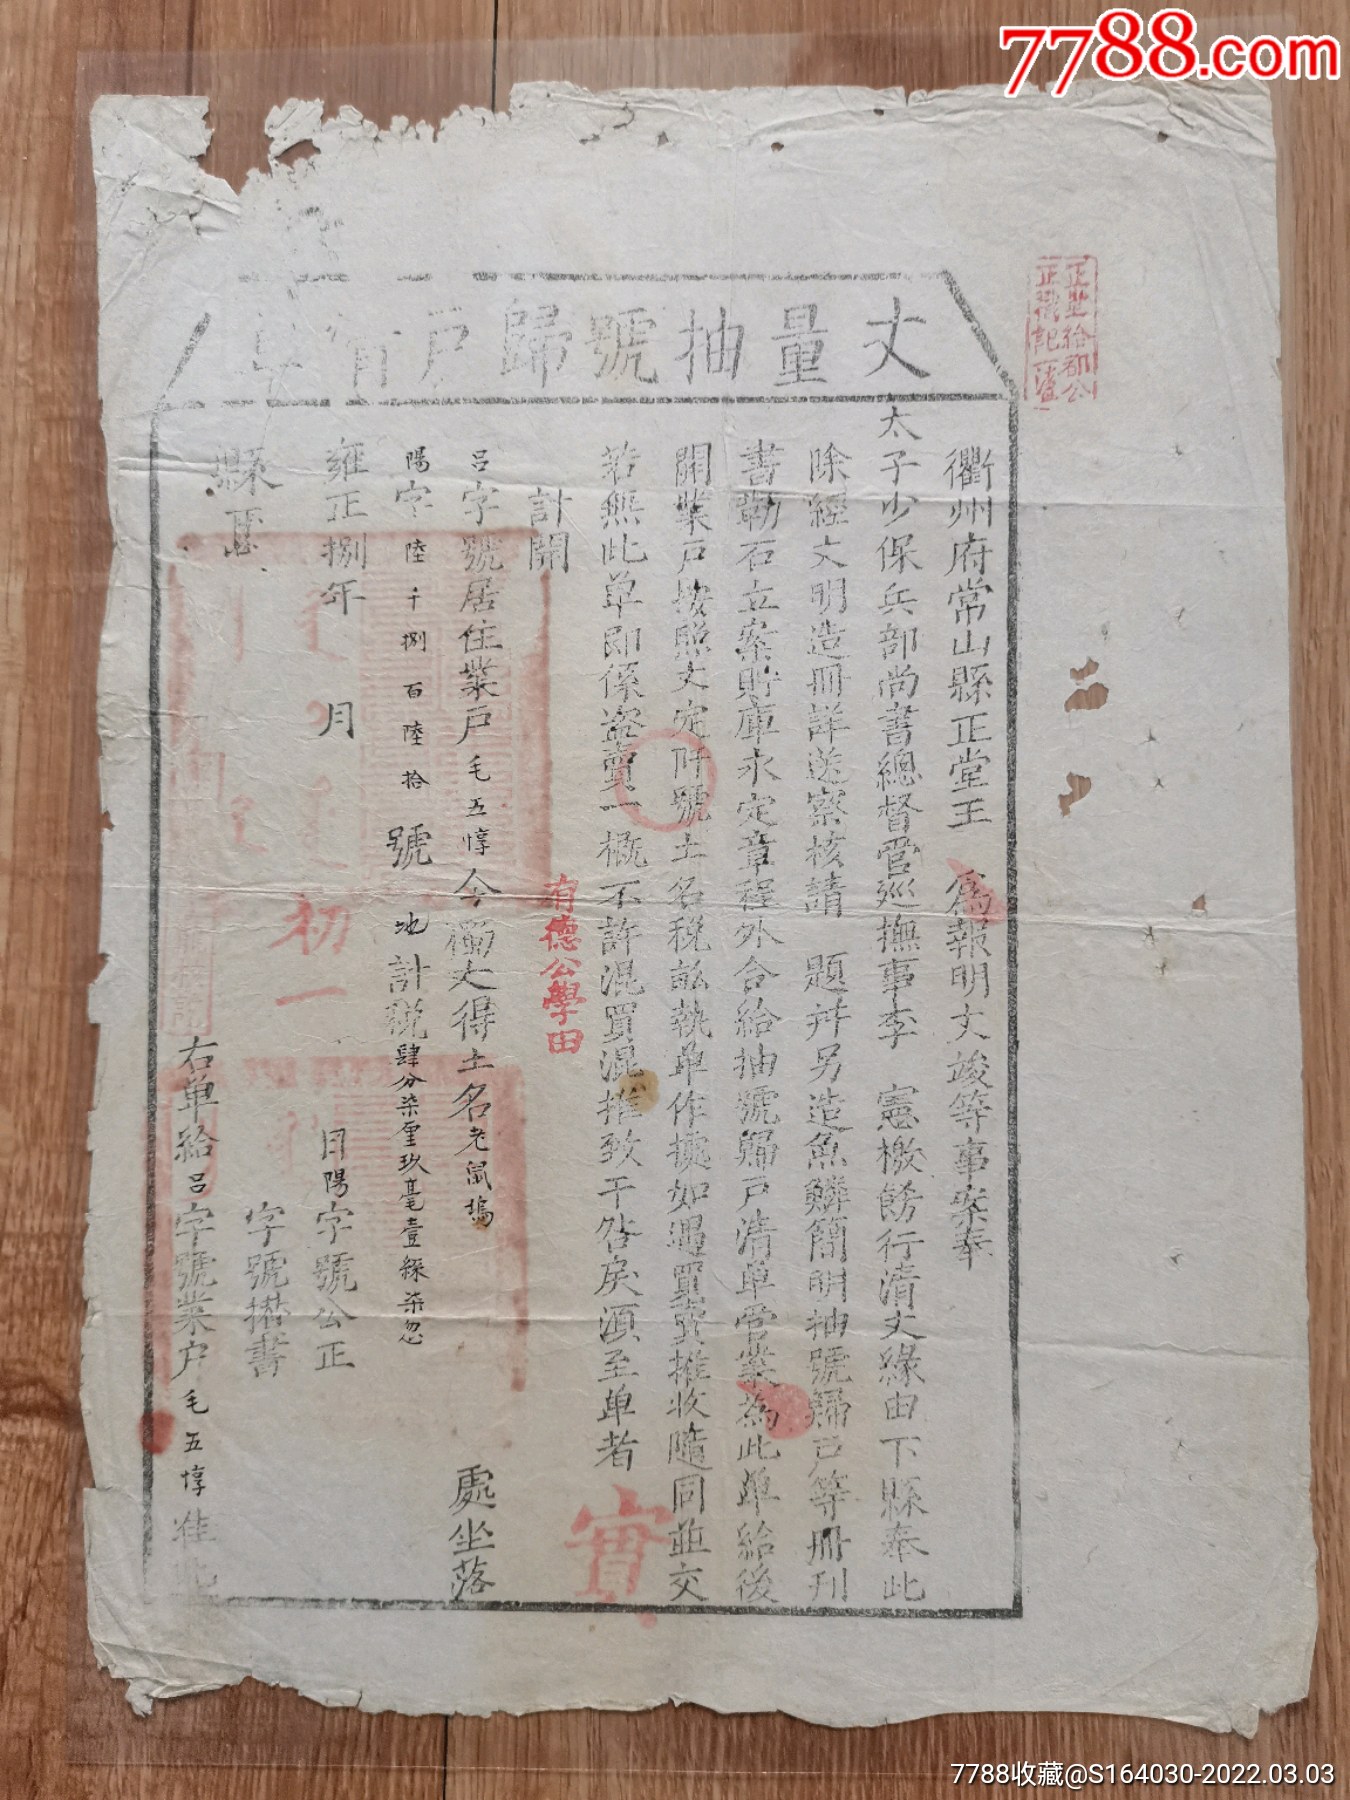 7788.com
丈量抽號歸戶清單
衢州府常山縣正堂王 為報明丈竣等事案奉
太子少保兵部尚書總督管巡撫事李 憲檄飭行清丈緣由下縣奉此
除經丈明造冊詳送察核請 題并另造魚鱗簡明抽號歸戶等冊刊
書勒石立案貯庫永定章程外合給抽號歸戶清單管業為此單給後
開業戶按照丈定阡號土名稅畝執單作據如遇買賣推收隨同並交
若無此單即係盜賣一概不許混買混推致干咎戾須至單者
計開
有德公學田
呂字號居住業戶毛五惇今獨丈得土名老鼠塢 處坐落
陽字陸千捌百陸拾號 地計稅肆分柒厘玖毫壹絲柒忽
雍正捌年 月 日陽字號公正
初一
字號攢書
縣正
右單給呂字號業戶毛五惇准此
實
7788收藏@S164030-2022.03.03